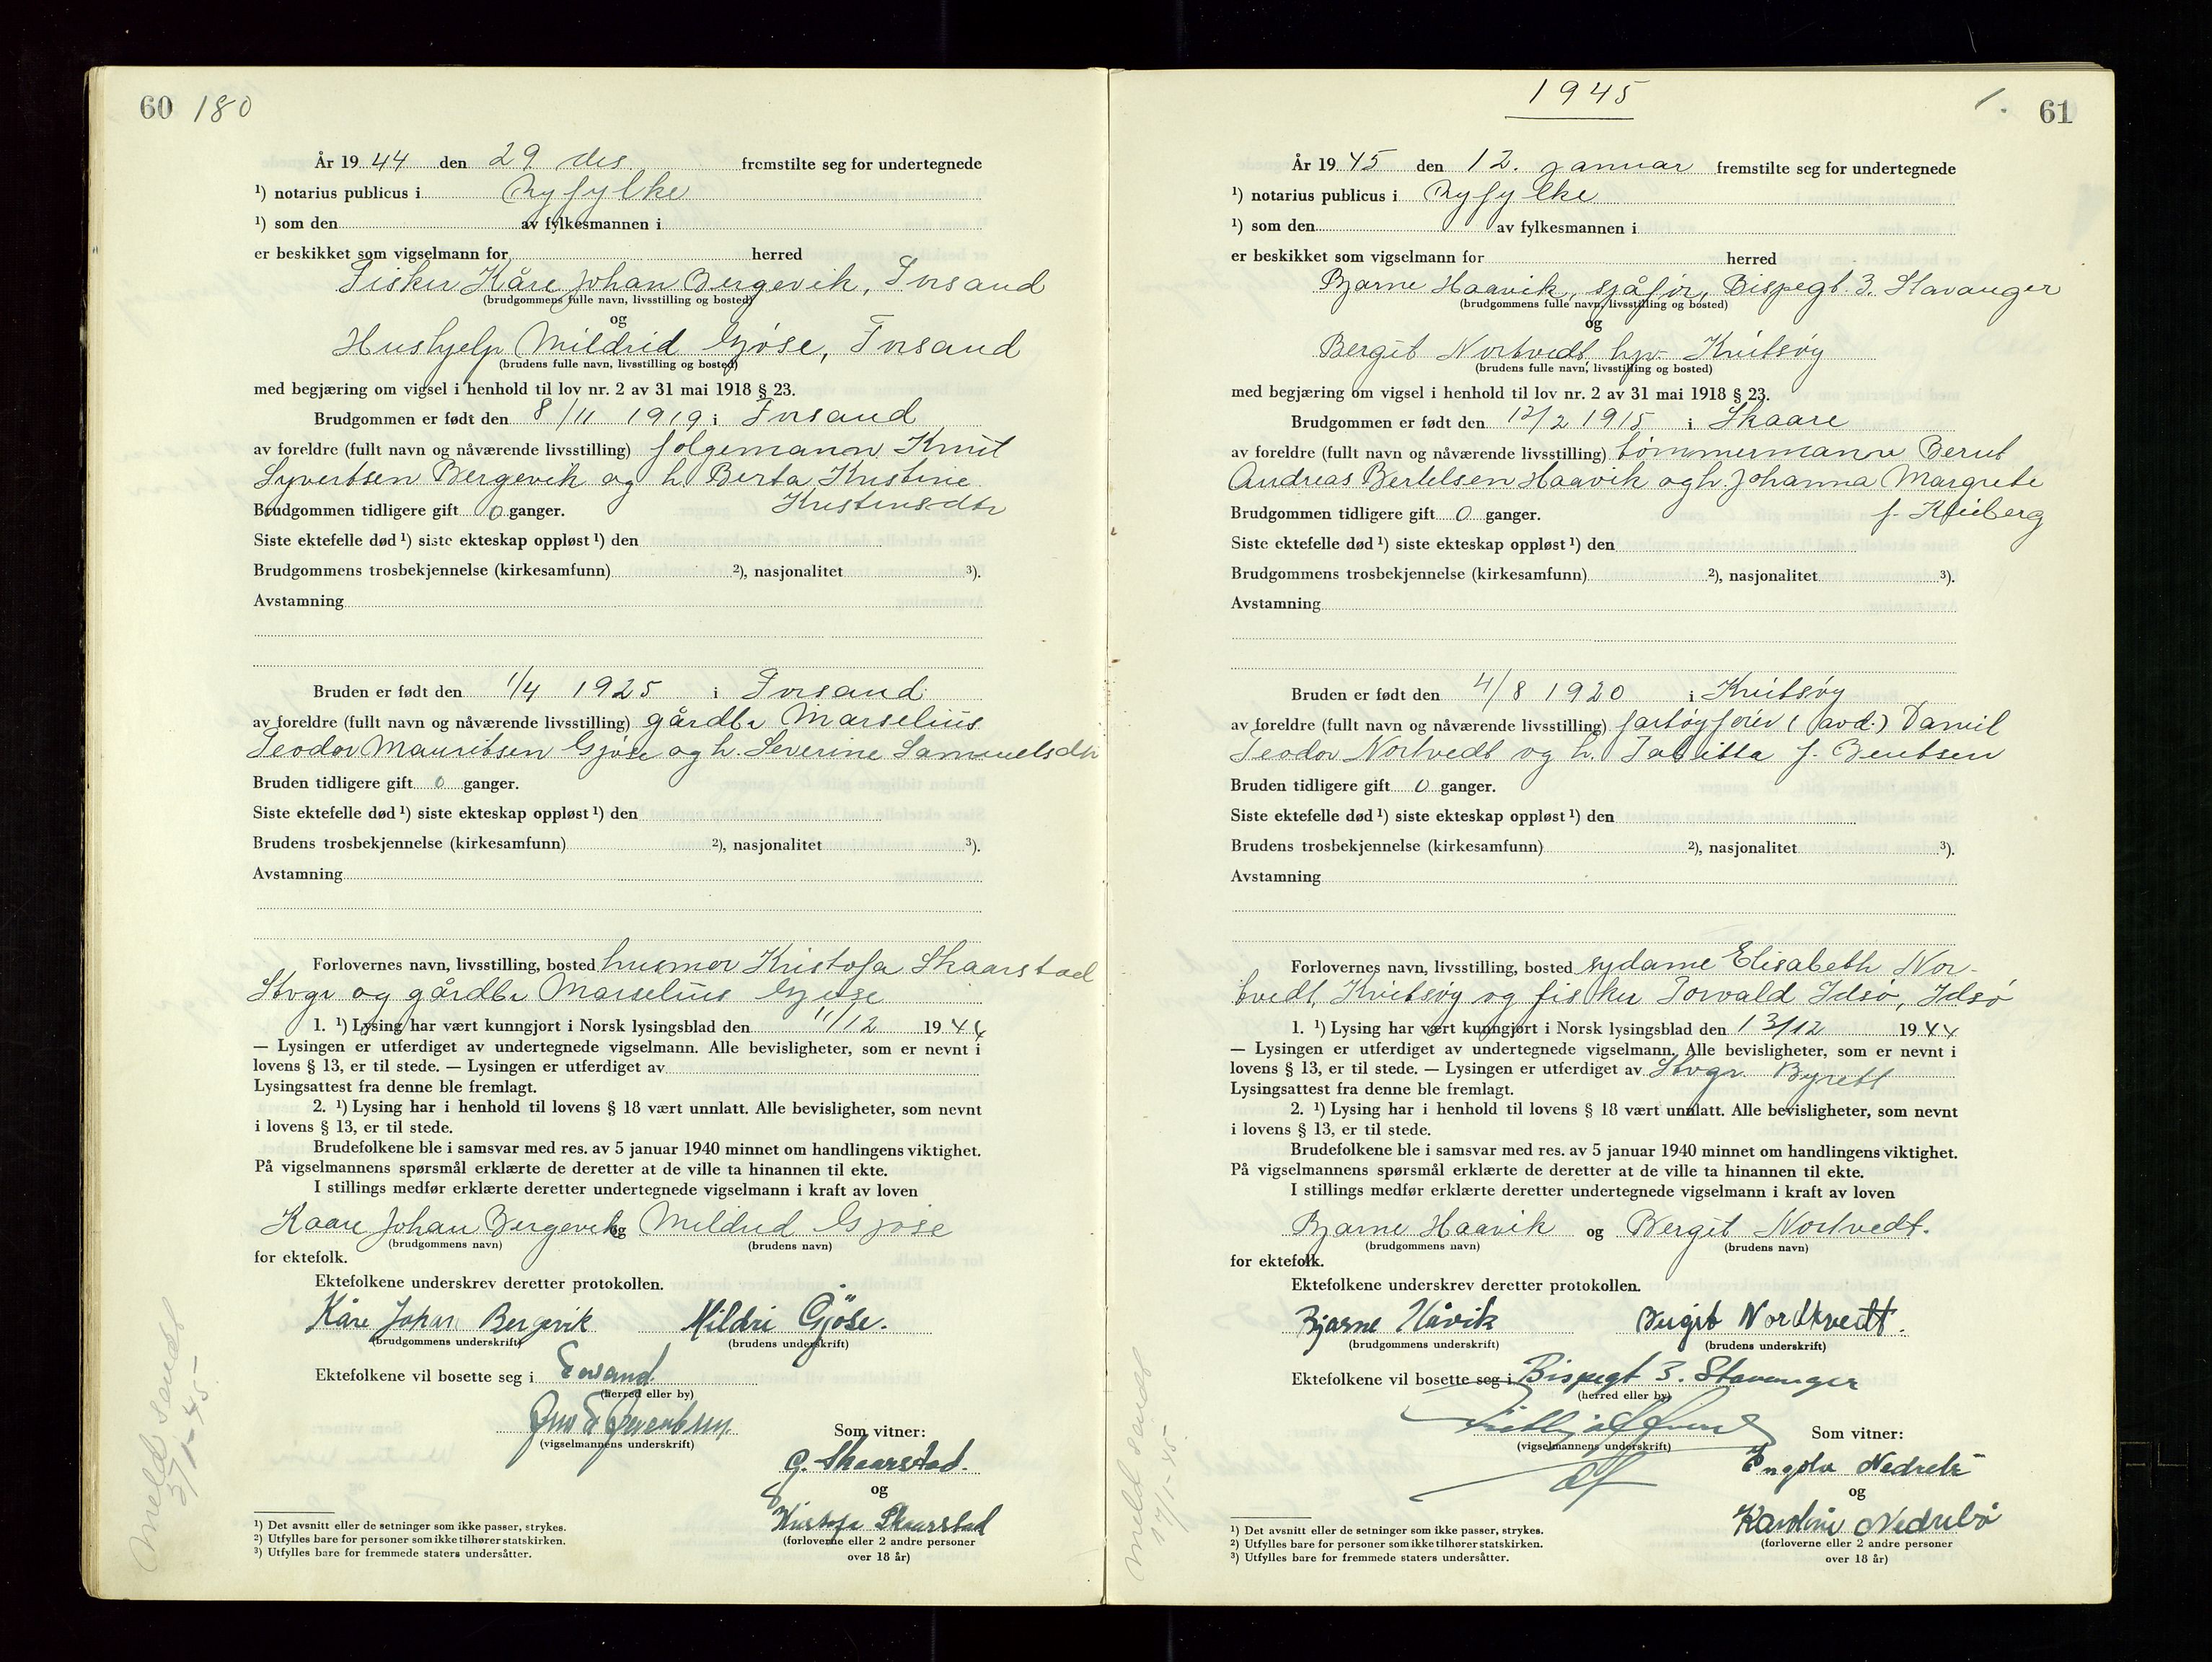 60 180
År 19 44 den 29 des. fremstilte seg for undertegnede
¹) notarius publicus i Ryfylke
¹) som den av fylkesmannen i
er beskikket som vigselmann for herred
Fisker Kåre Johan Bergevik, Forsand
(brudgommens fulle navn, livsstilling og bosted)
og
Hushjelp Mildrid Gjøse, Forsand
(brudens fulle navn, livsstilling og bosted)
med begjæring om vigsel i henhold til lov nr. 2 av 31 mai 1918 § 23.
Brudgommen er født den 8/11 1919 i Forsand
av foreldre (fullt navn og nåværende livsstilling) folgemann Knut
Syvertsen Bergevik og h. Berta Kristine
Kristensdtr
Brudgommen tidligere gift 0 ganger.
Siste ektefelle død ¹) siste ekteskap oppløst ¹) den
Brudgommens trosbekjennelse (kirkesamfunn) ²), nasjonalitet ³).
Avstamning
Bruden er født den 1/4 1925 i Forsand
av foreldre (fullt navn og nåværende livsstilling) gårdbr Marselius
Teodor Mauritsen Gjøse og h. Severine Samuelsdtr
Bruden tidligere gift 0 ganger.
Siste ektefelle død ¹) siste ekteskap oppløst ¹) den
Brudens trosbekjennelse (kirkesamfunn) ²), nasjonalitet ³).
Avstamning
Forlovernes navn, livsstilling, bosted husmor Kristofa Skaarstad
Stvgr og gårdbr Marselius Gjøse
1. ¹) Lysing har vært kunngjort i Norsk lysingsblad den 11/12 1944
— Lysingen er utferdiget av undertegnede vigselmann. Alle bevisligheter, som er nevnt i
lovens § 13, er til stede. — Lysingen er utferdiget av
Lysingsattest fra denne ble fremlagt.
2. ¹) Lysing har i henhold til lovens § 18 vært unnlatt. Alle bevisligheter, som nevnt
i lovens § 13, er til stede.
Brudefolkene ble i samsvar med res. av 5 januar 1940 minnet om handlingens viktighet.
På vigselmannens spørsmål erklærte de deretter at de ville ta hinannen til ekte.
I stillings medfør erklærte deretter undertegnede vigselmann i kraft av loven
Kaare Johan Bergevik og Mildrid Gjøse
(brudgommens navn) (brudens navn)
for ektefolk.
Ektefolkene underskrev deretter protokollen.
Kåre Johan Bergevik Mildri Gjöse.
(brudgommens underskrift) (brudens underskrift)
Ektefolkene vil bosette seg i Forsand
(herred eller by)
(vigselmannens underskrift)
Som vitner:
G. Skaarstad.
og
Kristofa Skaarstad
(forloverne eller 2 andre personer
over 18 år)
¹) Det avsnitt eller de setninger som ikke passer, strykes.
²) Utfylles bare for personer som ikke tilhører statskirken.
³) Utfylles bare for fremmede staters undersåtter.
Meld sendt
3/1-45-
1945
1. 61
År 19 45 den 12. januar fremstilte seg for undertegnede
¹) notarius publicus i Ryfylke
¹) som den av fylkesmannen i
er beskikket som vigselmann for herred
Bjarne Haavik, sjåfør, Bispegt. 3. Stavanger
(brudgommens fulle navn, livsstilling og bosted)
og
Bergit Nortvedt, hjv. Kvitsøy
(brudens fulle navn, livsstilling og bosted)
med begjæring om vigsel i henhold til lov nr. 2 av 31 mai 1918 § 23.
Brudgommen er født den 12/2 1915 i Skaare
av foreldre (fullt navn og nåværende livsstilling) tømmermann Berut
Andreas Bertelsen Haavik og h. Johanna Margrete
Brudgommen tidligere gift 0 ganger.
Siste ektefelle død ¹) siste ekteskap oppløst ¹) den
Brudgommens trosbekjennelse (kirkesamfunn) ²), nasjonalitet ³).
Avstamning
Bruden er født den 4/8 1920 i Kvitsøy
av foreldre (fullt navn og nåværende livsstilling) fartøyfører (avd.) Daniel
Teodor Nortvedt og h. Tabitta f. Bentsen
Bruden tidligere gift 0 ganger.
Siste ektefelle død ¹) siste ekteskap oppløst ¹) den
Brudens trosbekjennelse (kirkesamfunn) ²), nasjonalitet ³).
Avstamning
Forlovernes navn, livsstilling, bosted sydame Elisabeth Nor-
tvedt, Kvitsøy og fisker Torvald Idsø, Idsø
1. ¹) Lysing har vært kunngjort i Norsk lysingsblad den 13/12 1944
— Lysingen er utferdiget av undertegnede vigselmann. Alle bevisligheter, som er nevnt i
lovens § 13, er til stede. — Lysingen er utferdiget av Stvgr. Byrett
Lysingsattest fra denne ble fremlagt.
2. ¹) Lysing har i henhold til lovens § 18 vært unnlatt. Alle bevisligheter, som nevnt
i lovens § 13, er til stede.
Brudefolkene ble i samsvar med res. av 5 januar 1940 minnet om handlingens viktighet.
På vigselmannens spørsmål erklærte de deretter at de ville ta hinannen til ekte.
I stillings medfør erklærte deretter undertegnede vigselmann i kraft av loven
Bjarne Haavik og Bergit Nortvedt.
(brudgommens navn) (brudens navn)
for ektefolk.
Ektefolkene underskrev deretter protokollen.
Bjarne Håvik Bergit Nordtvedt.
(brudgommens underskrift) (brudens underskrift)
Ektefolkene vil bosette seg i Bispegt 3. Stavanger
(herred eller by)
(vigselmannens underskrift)
Som vitner:
Engolv Nedrebø
og
Karoline Nedrebø
(forloverne eller 2 andre personer
over 18 år)
¹) Det avsnitt eller de setninger som ikke passer, strykes.
²) Utfylles bare for personer som ikke tilhører statskirken.
³) Utfylles bare for fremmede staters undersåtter.
Meld sendt
17/1-45.